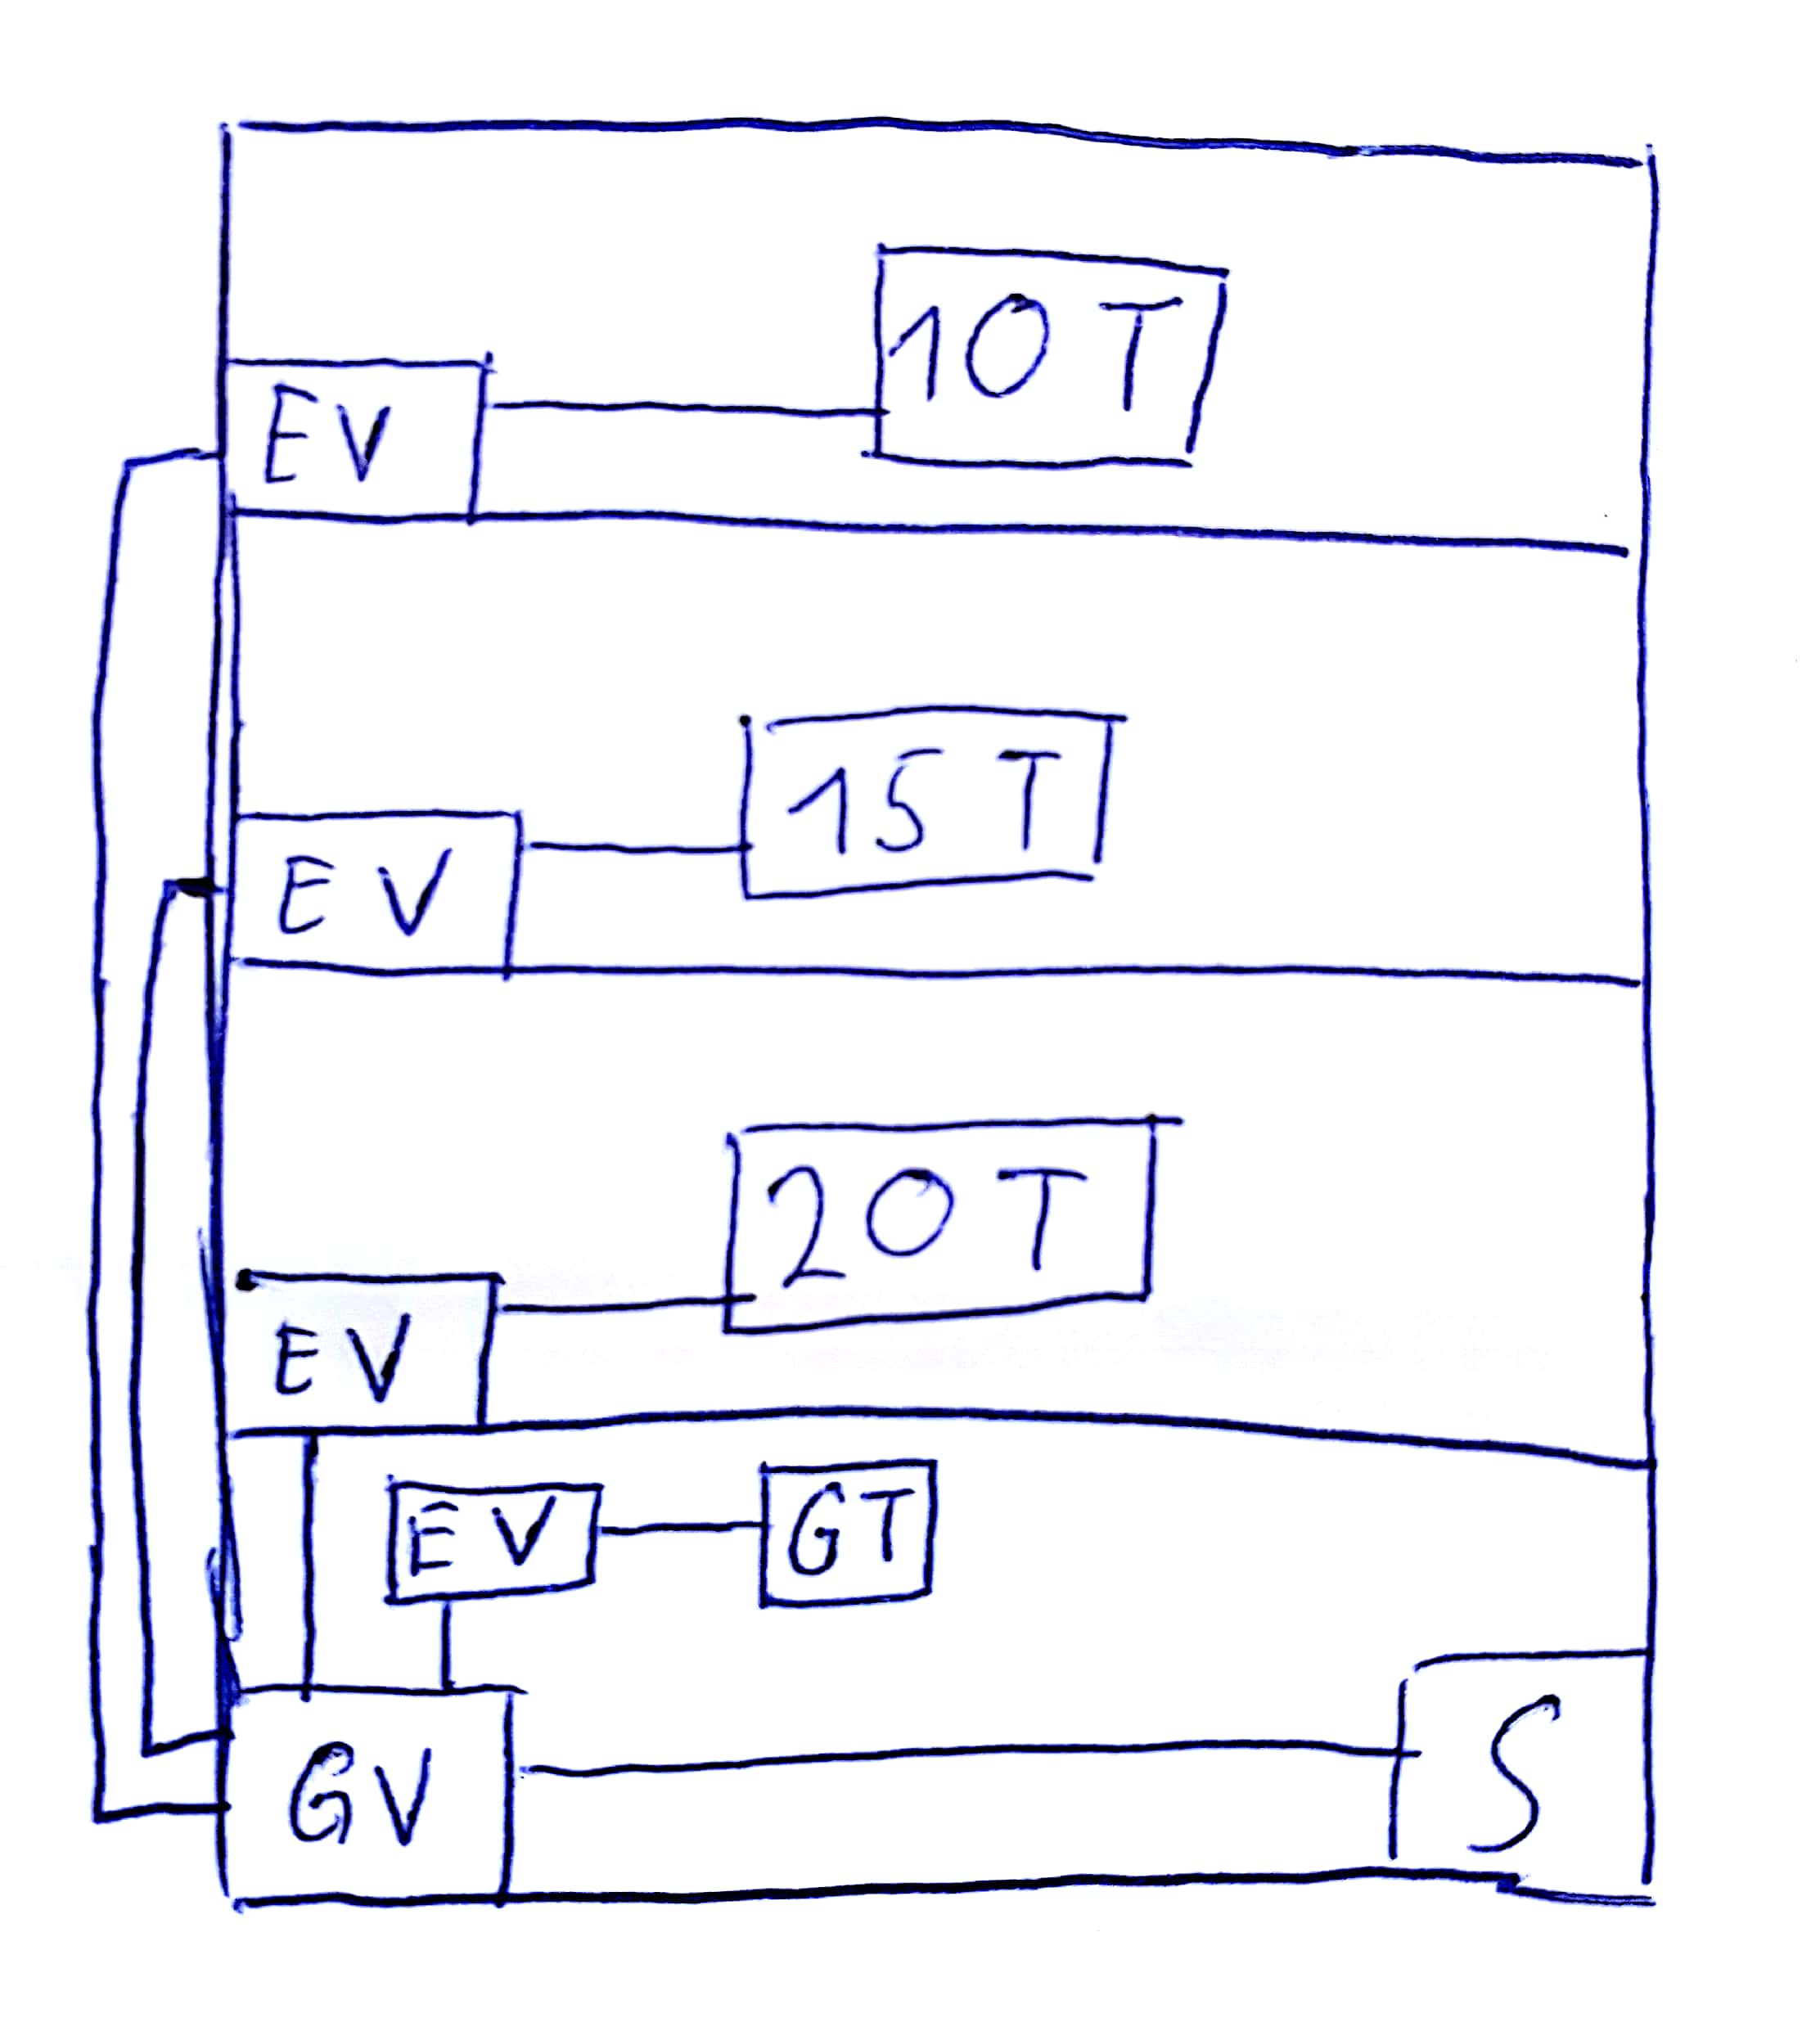 10 T
EV
15 T
EV
20 T
EV
EV
GT
GV
S